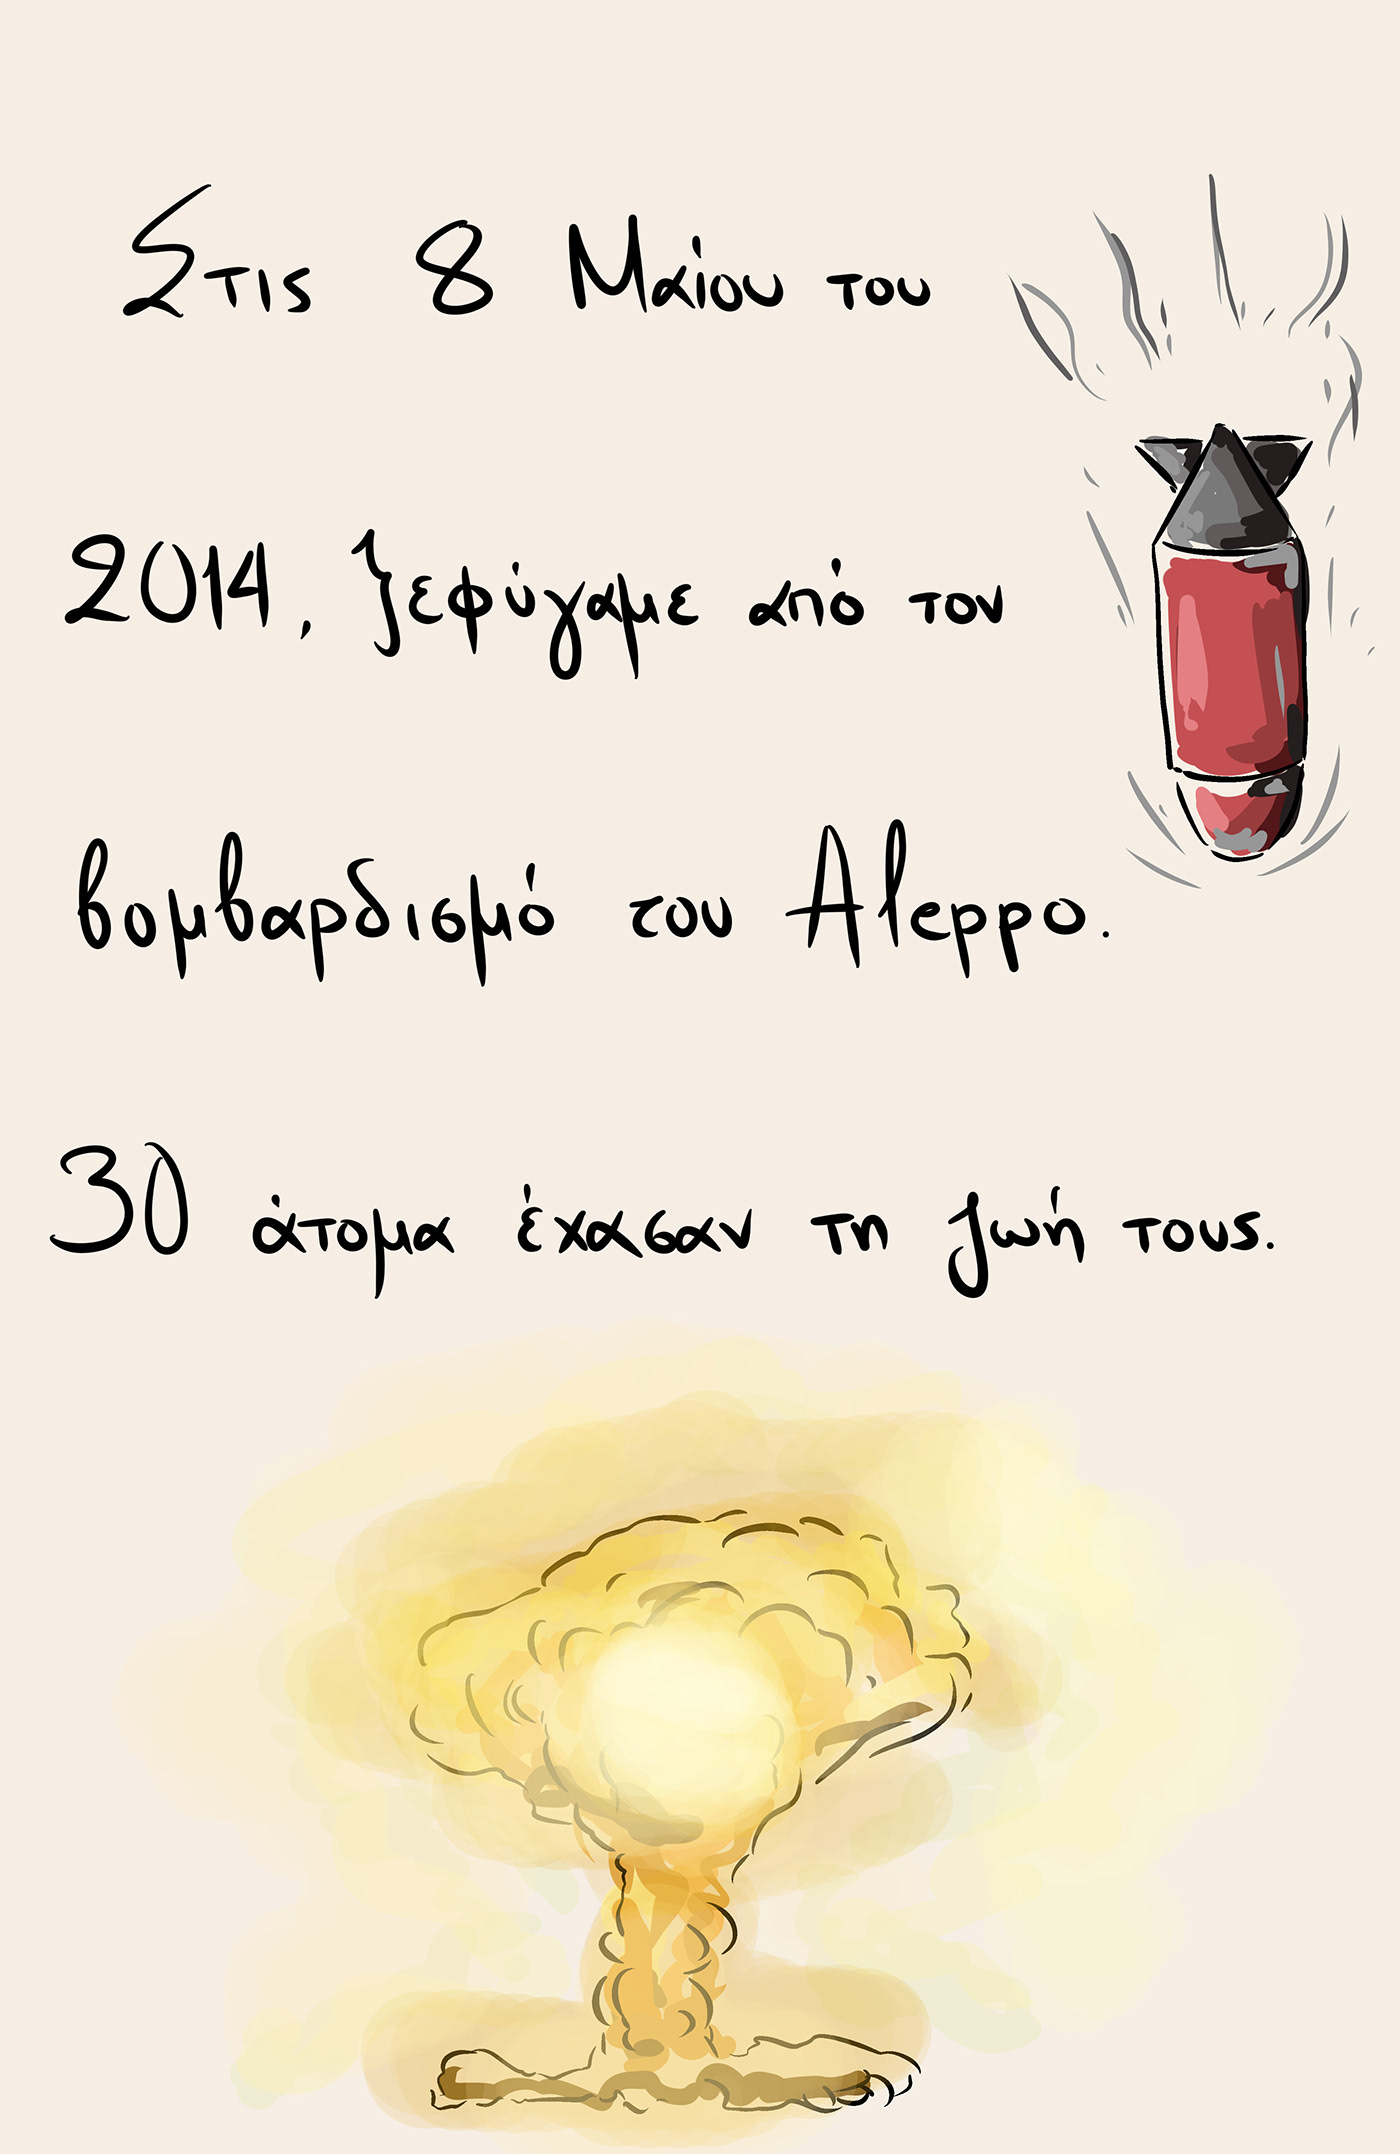 Στις 8 Μαίου του
2014, ξεφύγαμε από τον
βομβαρδισμό του Aleppo.
30 άτομα έχασαν τη ζωή τους.